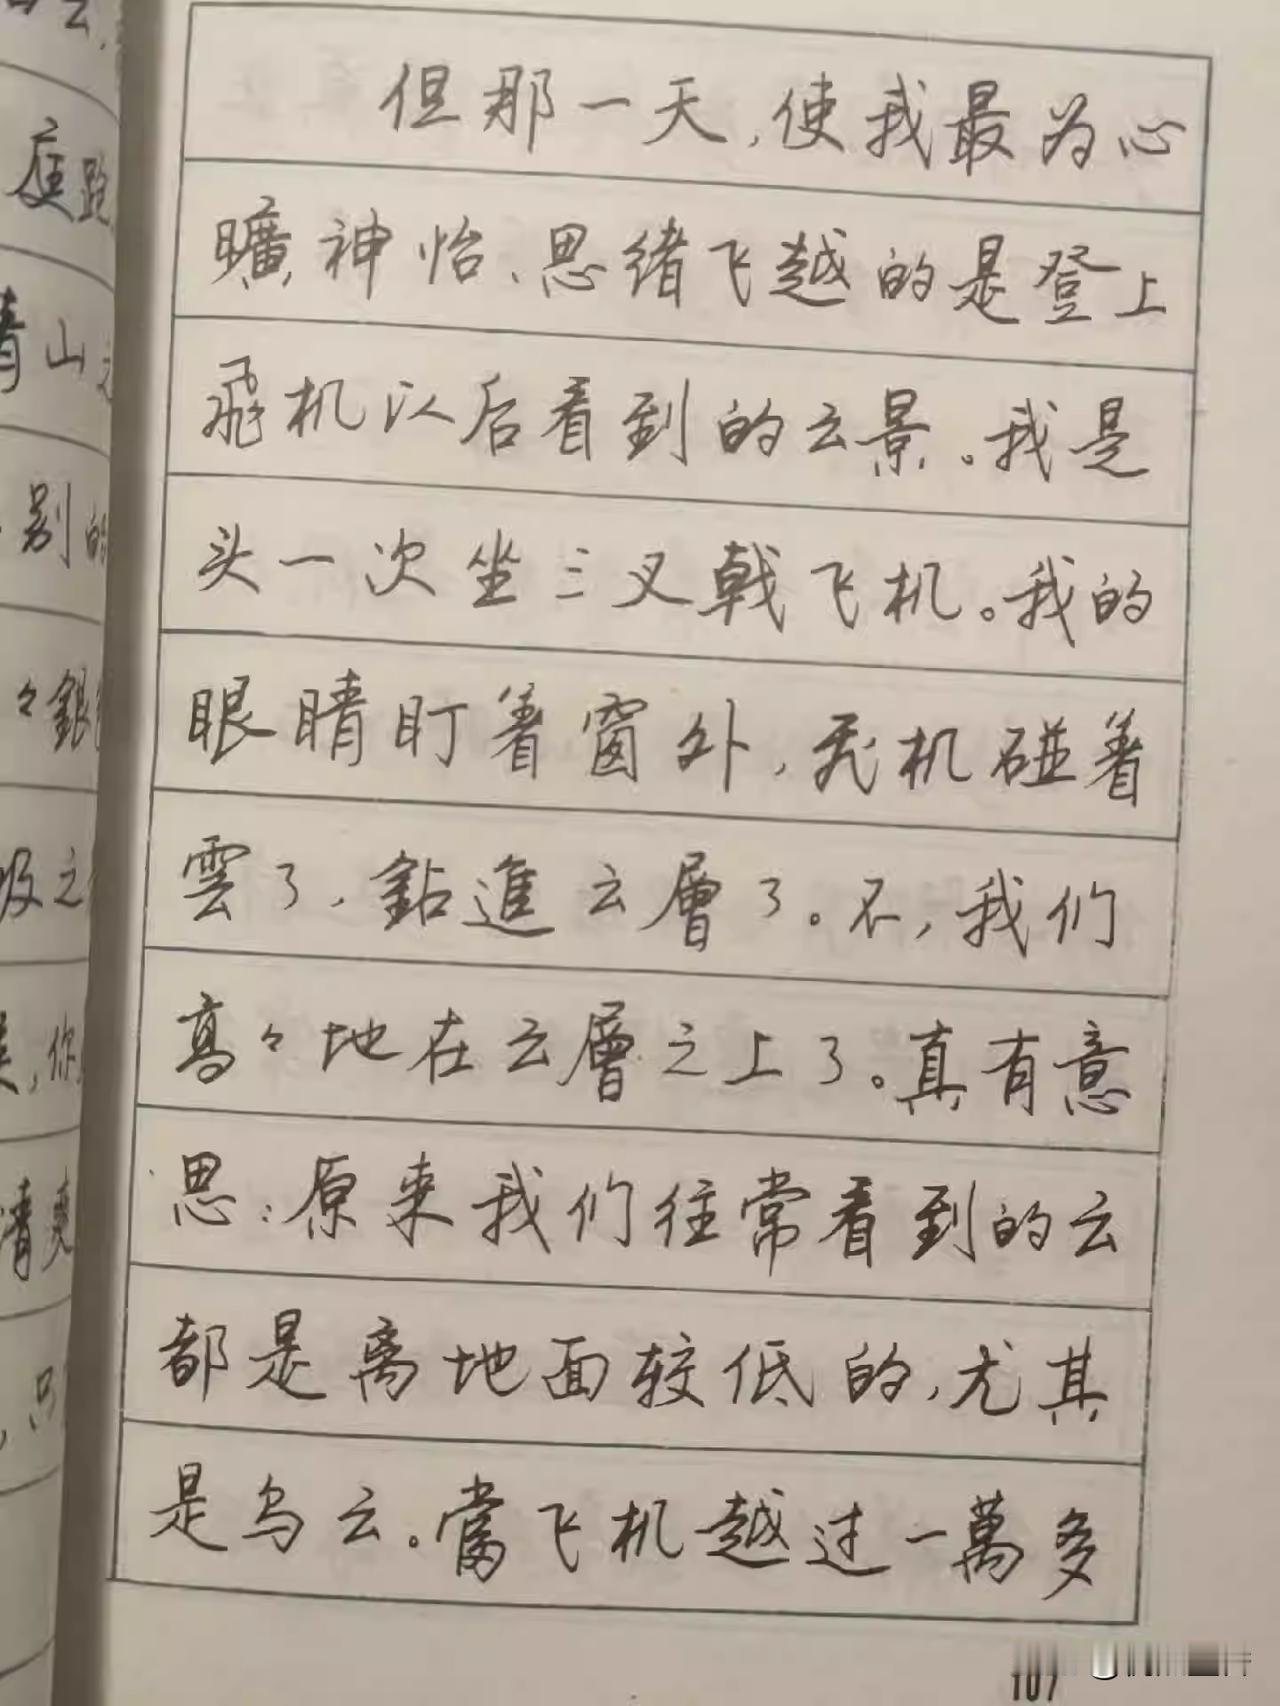 但那一天,使我最为心
曠神怡、思绪飞越的是登上
飛机以后看到的云景。我是
头一次坐三叉戟飞机。我的
眼睛盯着窗外,飞机碰着
雲了,鉆進云層了。不,我们
高々地在云層之上了。真有意
思:原来我们往常看到的云
都是离地面较低的,尤其
是乌云。當飞机越过一萬多
107
庭跑
青山
别的
々銀
吸之
,你
清爽
,只